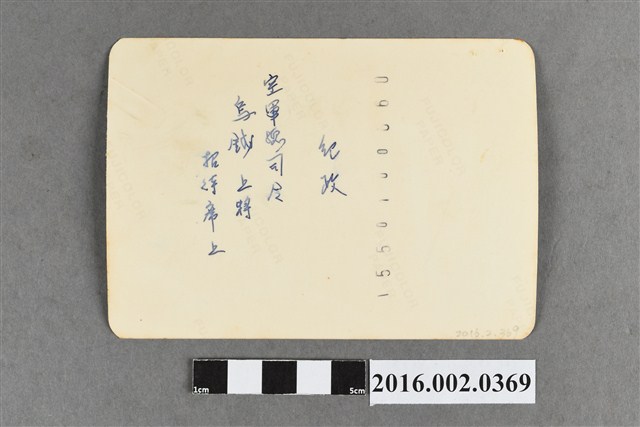 紀政
空軍總司令
烏鉞 上將
招待席上
1550100360
2016.2.369
1cm
5cm
2016.002.0369